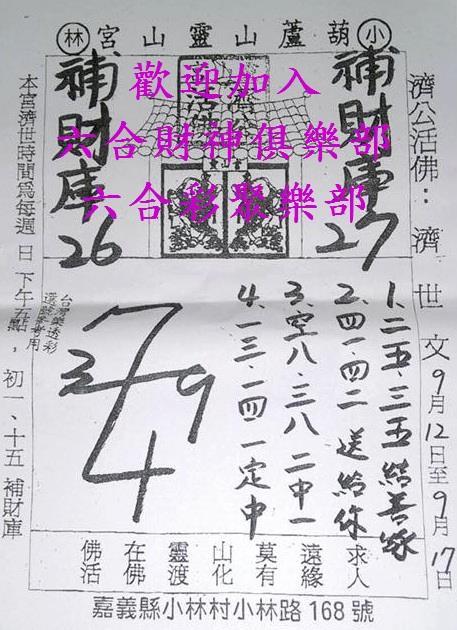 小 葫蘆山靈山宮 林
歡迎加入
六合財神俱樂部
六合彩聚樂部
濟公活佛：濟世文 9月12日至9月17日
補財庫
27
補財庫
26
1.二五.三五結善緣
2.四一.四二送給你
3.空八.三八二中一
4.一三. 一定中
7
2 9
4
台灣樂透彩
選號參考用
本宮濟世時間為每週日下午五點，初一、十五 補財庫
佛在靈山莫遠求
活佛渡化有緣人
嘉義縣小林村小林路168號